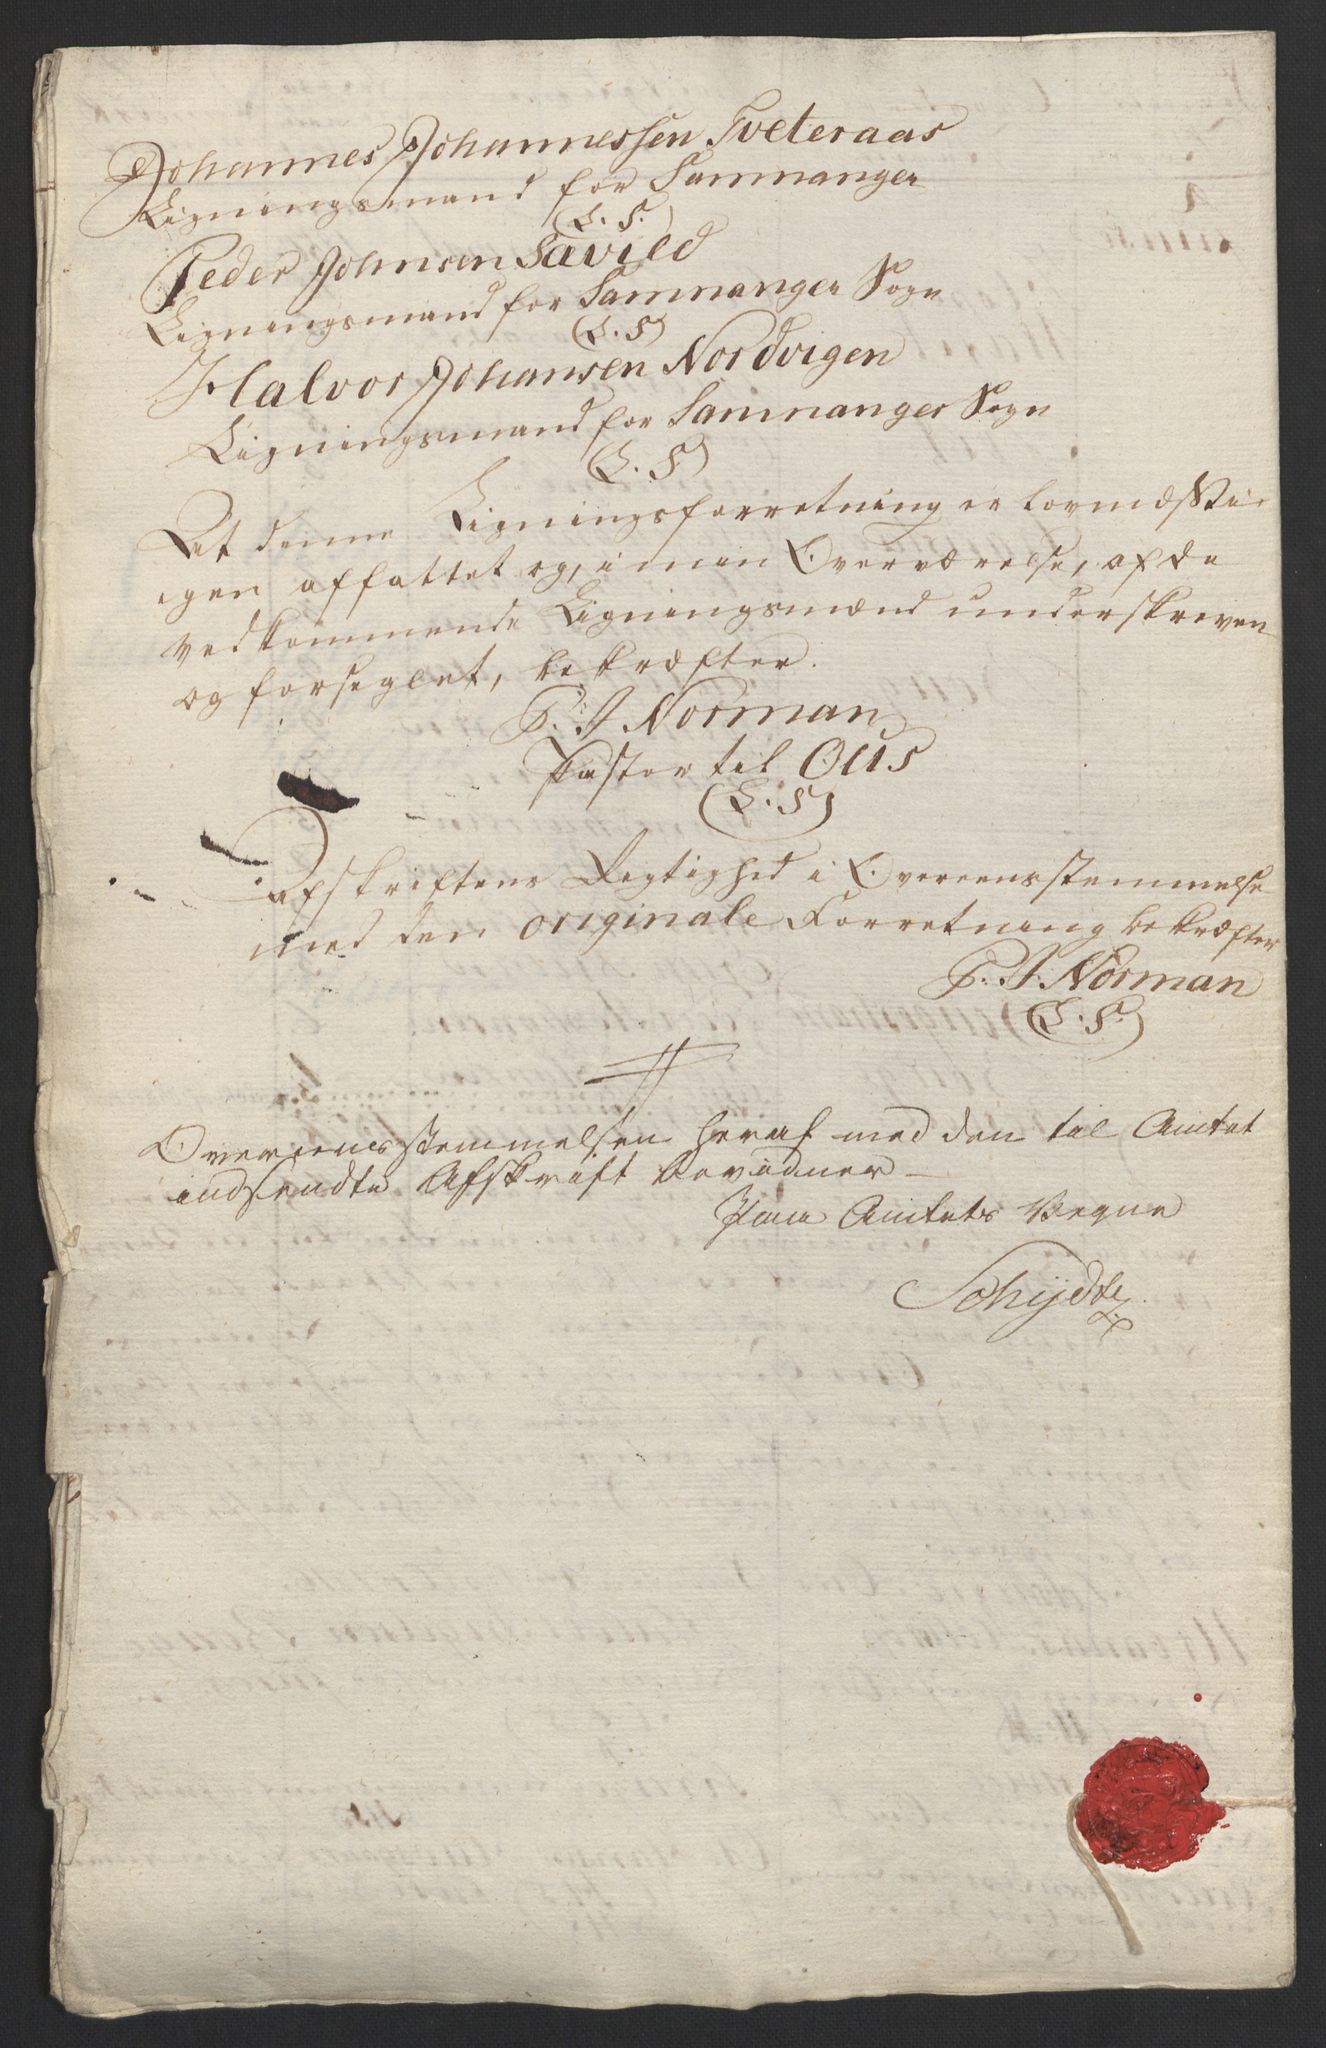 Johannes Johannessen Tveteraas
Ligningsmand for Samnanger
(L. S.)
Peder Johnsen Tavild
Ligningsmand for Samnanger Sogn
(L. S.)
Halvor Johansen Nordvigen
Ligningsmand for Samnanger Sogn
(L. S.)
At denne Ligningsforretning er lovmæssi-
gen affattet og, i min Overværelse, af de
vedkommende Ligningsmænd underskreven
og forseglet, bekræfter.
P. J. Norman
Pastor til Ous
(L. S.)
Afskriftens Rigtighed i Overeensstemmelse
med den originale Forretning bekræfter
P. J. Norman
(L. S.)
Overeensstemmelsen heraf med den til Amtet
indsendte Afskrift bevidner
Paa Amtets Vegne
Schydtz